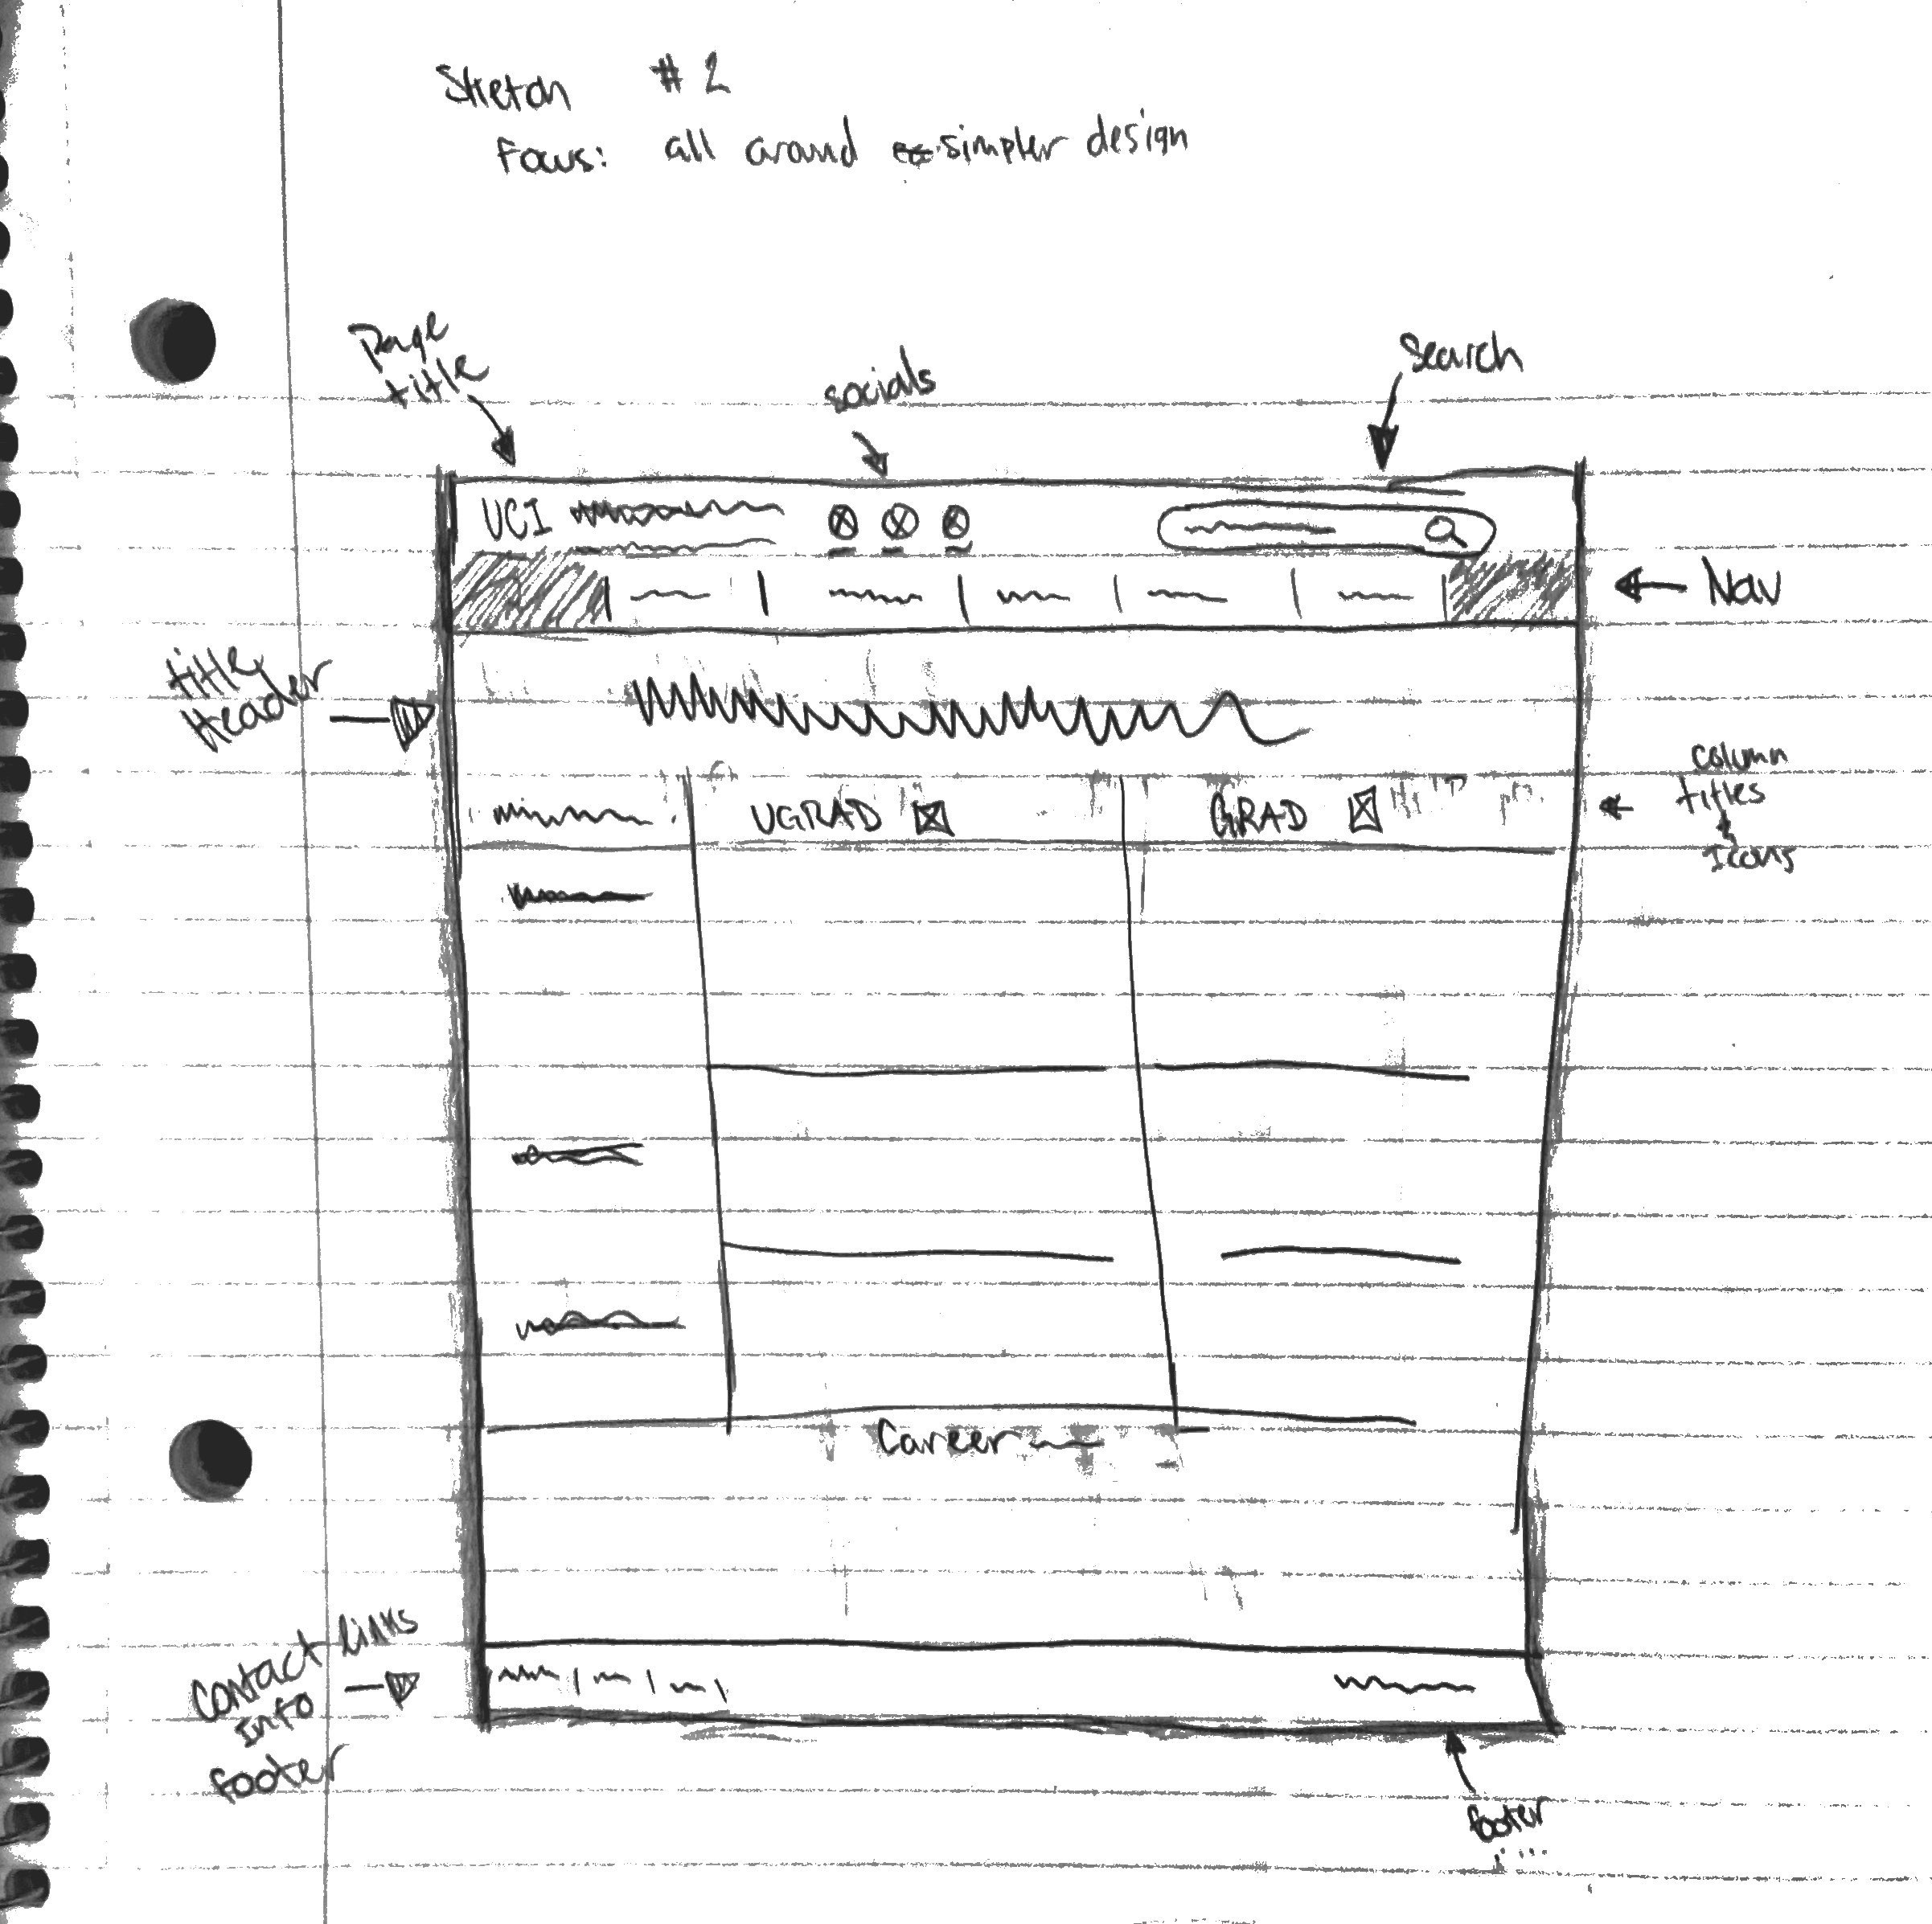 Sketch #2
Focus: all around simpler design
Page
title
socials
search
UCI
Nav
title
Header
UGRAD
GRAD
column
titles
&
Icons
Career
Contact links
Info
footer
footer